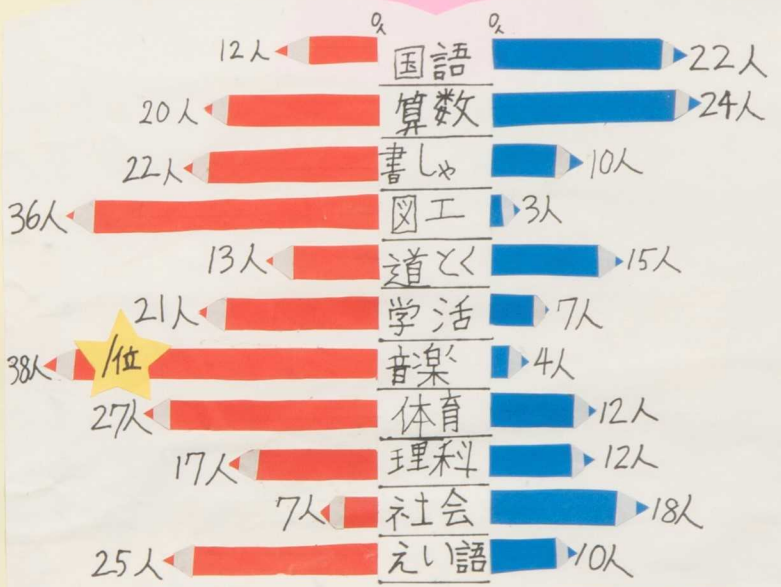 0人 0人
12人 国語 22人
20人 算数 24人
22人 書しゃ 10人
36人 図工 3人
13人 道とく 15人
21人 学活 7人
38人 1位 音楽 4人
27人 体育 12人
17人 理科 12人
7人 社会 18人
25人 えい語 10人